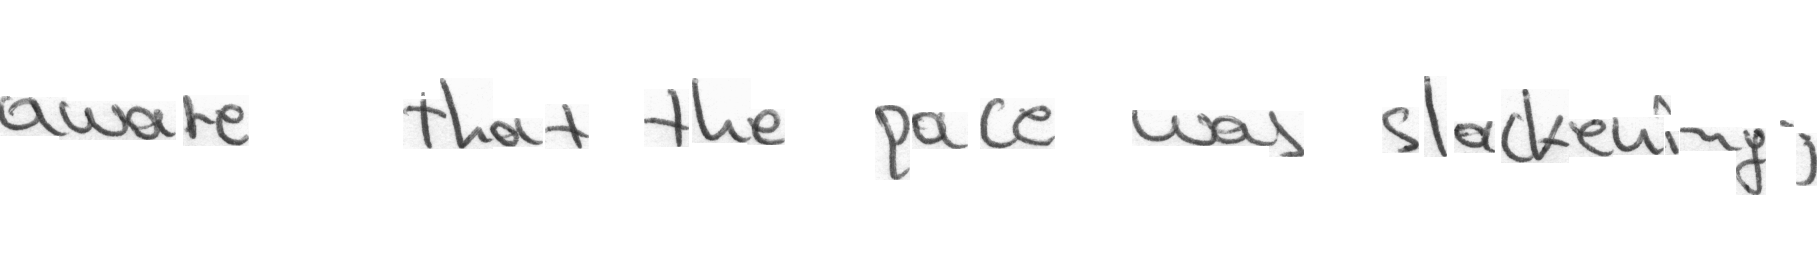 aware that the pace was slackening;